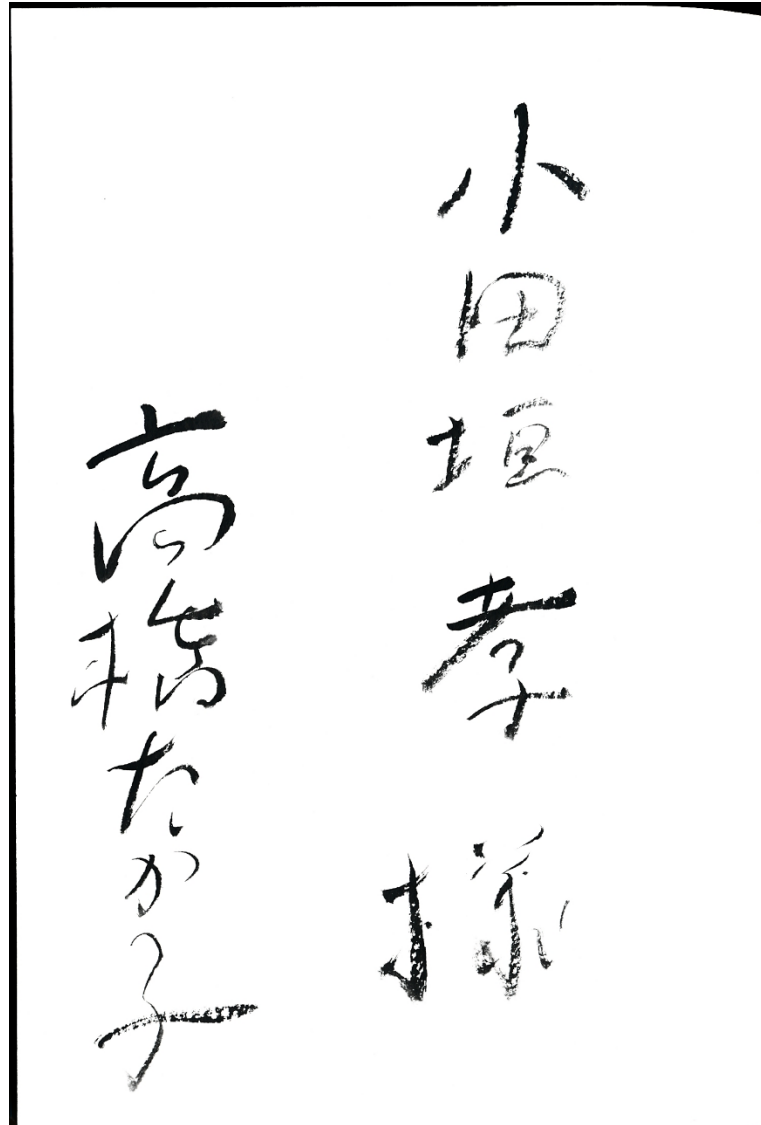 小田垣孝様
高橋たか子